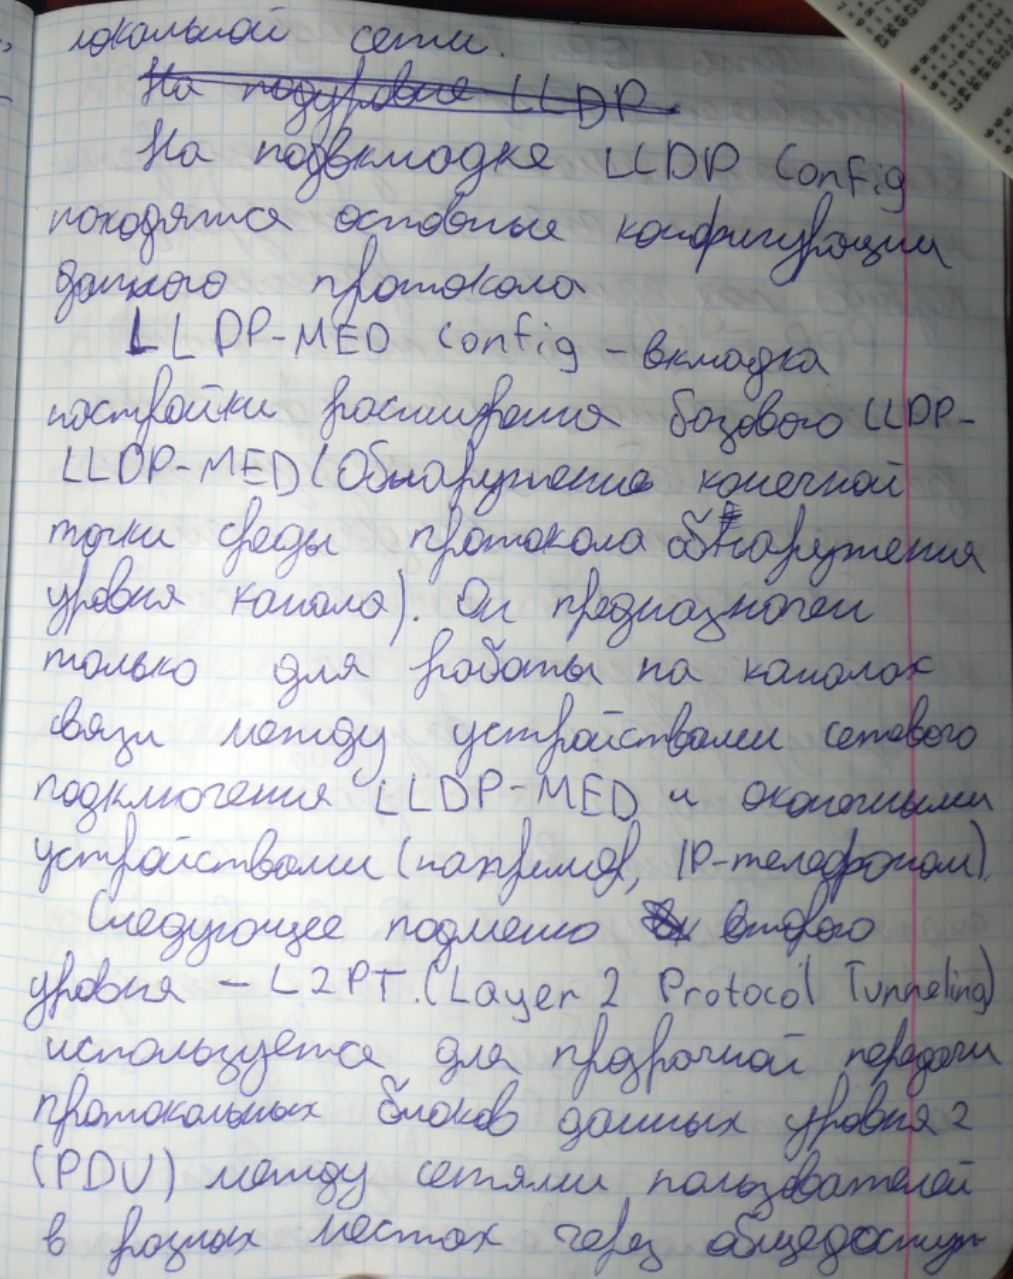 локальной сети.
На подуровне LLDP
На подвкладке LLDP Config
находятся основные конфигурации
данного протокола
LLDP-MED Config - вкладка
настройки расширения базового LLDP-
LLDP-MED (Обнаружение конечной
точки среды протокола обнаружения
уровня канала). Он предназначен
только для работы на каналах
связи между устройствами сетевого
подключения LLDP-MED и оконечными
устройствами (например, IP-телефоном)
Следующее подменю второго
уровня - L2PT. (Layer 2 Protocol Tunneling)
используется для прозрачной передачи
протокольных блоков данных уровня 2
(PDU) между сетями пользователей
в разных местах через общедоступн